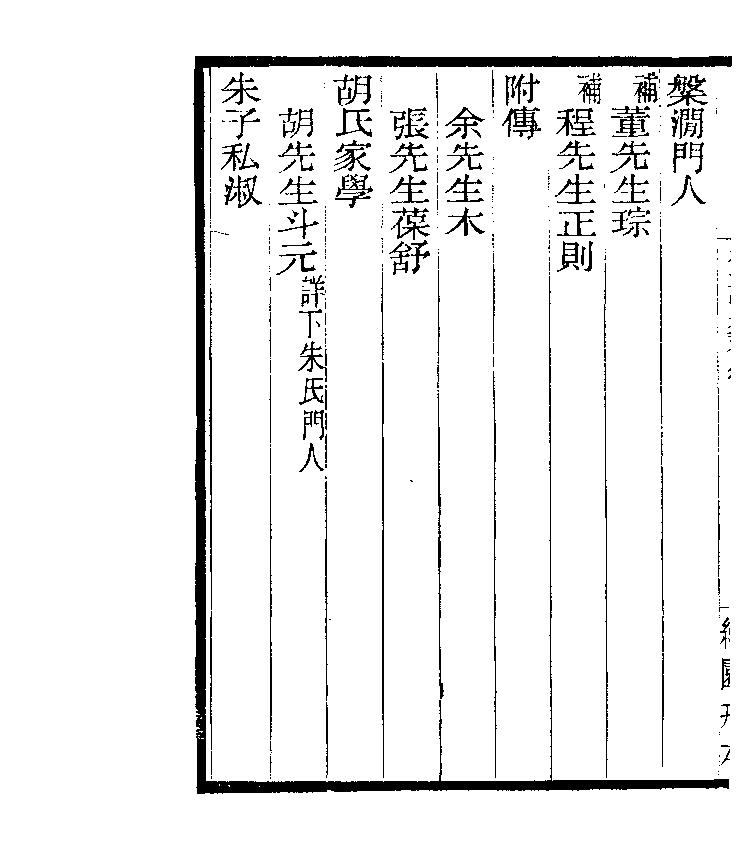 槃澗門人
補董先生琮
補程先生正則
附傳
余先生木
張先生葆舒
胡氏家學
胡先生斗元詳下朱氏門人
朱子私淑